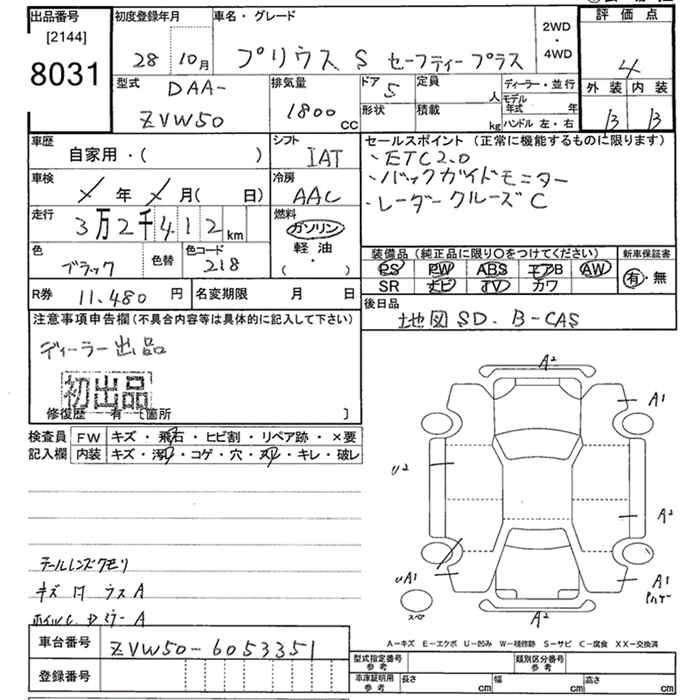 出品番号
[2144]
8031
初度登録年月
28年 10月
車名・グレード
プリウス S セーフティープラス
2WD
・
4WD
評価点
4
外装 内装
B B
型式
DAA-
ZVW50
排気量
1800 cc
ドア 5
形状
定員 人
積載 kg
ディーラー・並行
モデル年式 年
ハンドル 左・右
車歴
自家用・( )
シフト
IAT
車検
メ 年 メ 月( 日)
冷房
AAC
走行
3万2千412km
燃料
ガソリン
軽油
( ・ )
色
ブラック
色替
色コード
218
R券 11,480 円
名変期限 月 日
セールスポイント (正常に機能するものに限ります)
・ETC2.0
・バックガイドモニター
・レーダークルーズC
装備品 (純正品に限り○をつけてください)
PS PW ABS エアB AW
SR ナビ TV カワ
新車保証書
有・無
後日品
地図SD. B-CAS
注意事項申告欄 (不具合内容等は具体的に記入して下さい)
ディーラー出品
初出品
修復歴 有 [箇所 ]
検査員
記入欄
FW キズ・飛石・ヒビ割・リペア跡・×要
内装 キズ・汚れ・コゲ・穴・スレ・キレ・破レ
テールレンズクモリ
A2
A1
U2
A2
UA1
A1
スペア
A2
A-キズ E-エクボ U-凹み W-補修跡 S-サビ C-腐食 XX-交換済
車台番号 ZVW50-6053351
登録番号
型式指定番号
参考
類別区分番号
参考
車庫証明用
参考
長さ cm
幅 cm
高さ cm